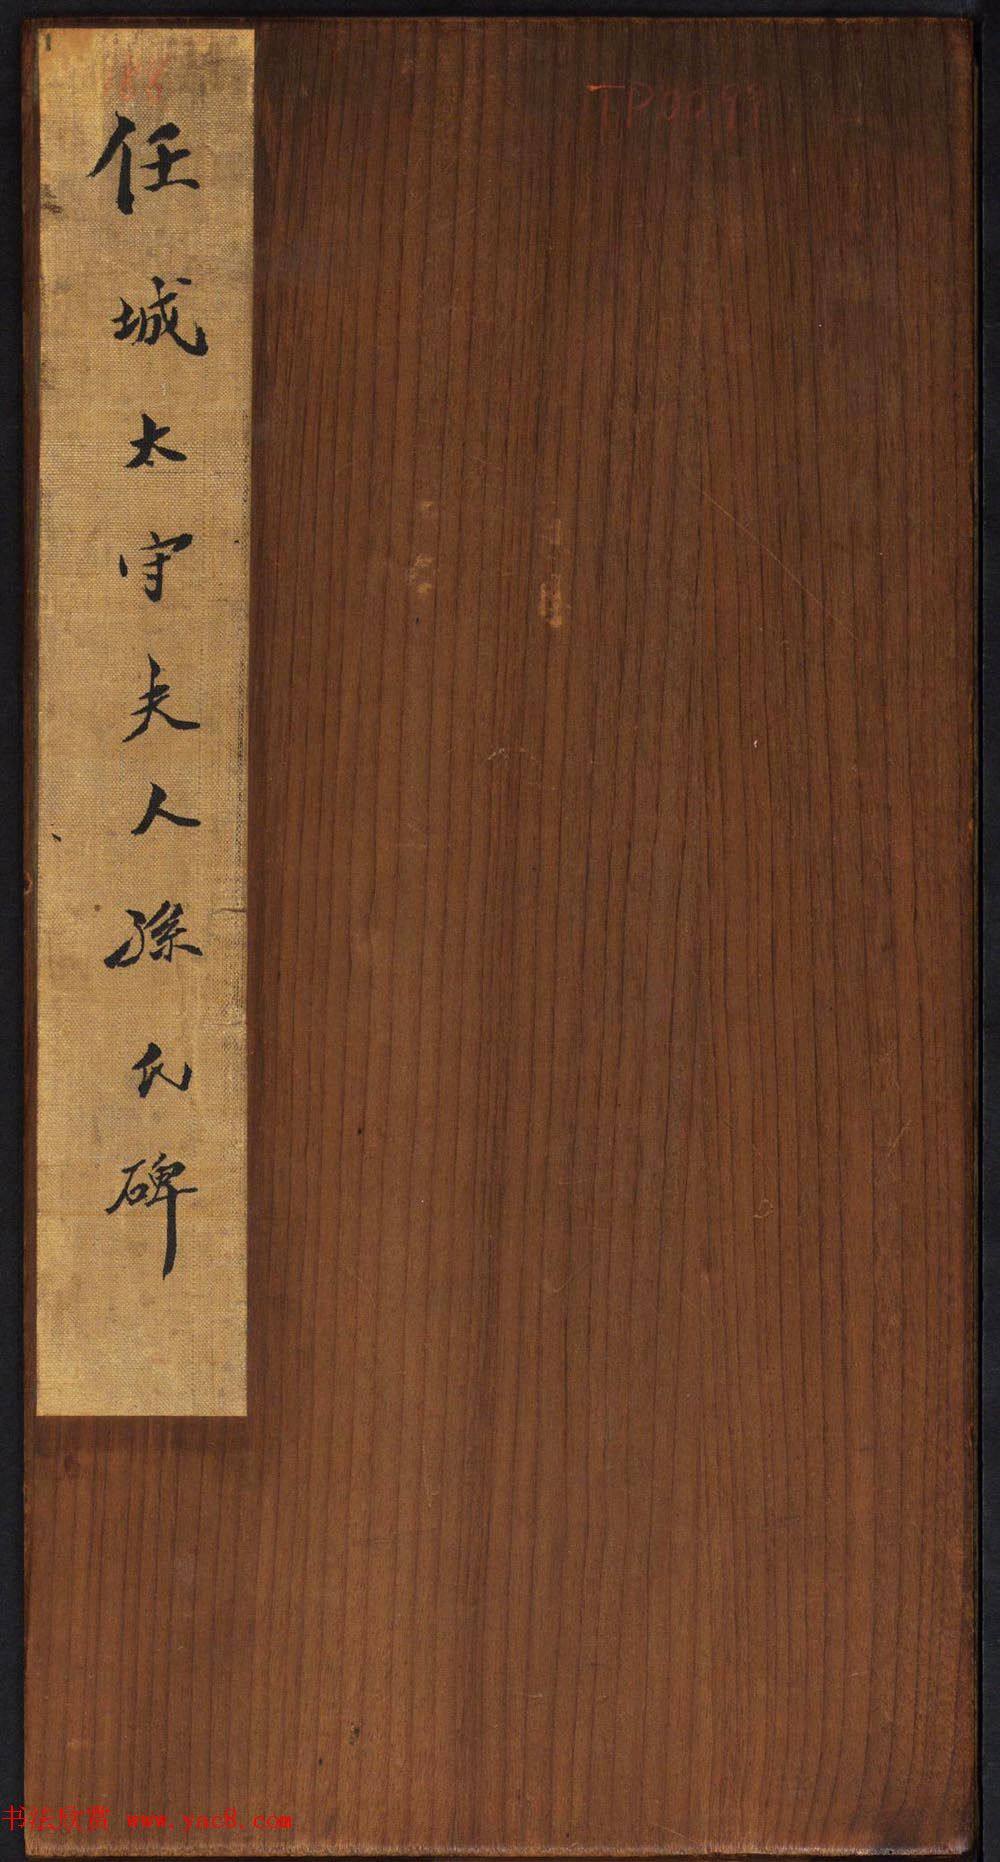 任城太守夫人孫氏碑
TP0093
书法欣赏 www.yac8.com